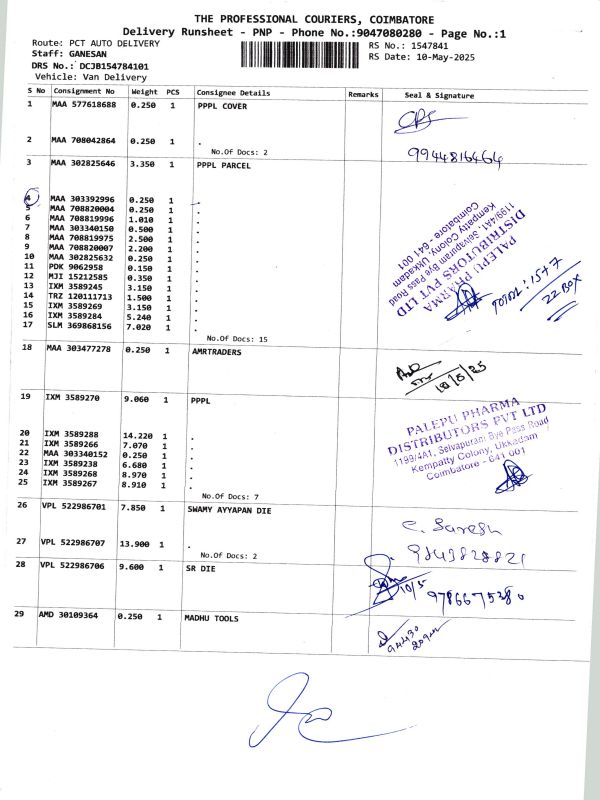 THE PROFESSIONAL COURIERS, COIMBATORE
Delivery Runsheet - PNP - Phone No.:9047080280 - Page No.:1
Route: PCT AUTO DELIVERY RS No.: 1547841
Staff: GANESAN RS Date: 10-May-2025
DRS No.: DCJB154784101
Vehicle: Van Delivery
S No Consignment No Weight PCS Consignee Details Remarks Seal & Signature
1 MAA 577618688 0.250 1 PPPL COVER
2 MAA 708042864 0.250 1 .
No.Of Docs: 2
9944816464
3 MAA 302825646 3.350 1 PPPL PARCEL
4 MAA 303392996 0.250 1 .
5 MAA 708820004 0.250 1 .
6 MAA 708819996 1.010 1 .
7 MAA 303340150 0.500 1 .
8 MAA 708819975 2.500 1 .
9 MAA 708820007 2.200 1 .
10 MAA 302825632 0.250 1 .
11 PDK 9062958 0.150 1 .
12 MJI 15212585 0.350 1 .
13 IXM 3589245 3.150 1 .
14 TRZ 120111713 1.500 1 .
15 IXM 3589269 3.150 1 .
16 IXM 3589284 5.240 1 .
17 SLM 369868156 7.020 1 .
No.Of Docs: 15
PALEPU PHARMA
DISTRIBUTORS PVT LTD
1199/4A1, Selvapuram Bye Pass Road
Kempatty Colony, Ukkadam
Coimbatore - 641 001
TOTAL: 15+7
22 BOX
18 MAA 303477278 0.250 1 AMRTRADERS
10/5/25
19 IXM 3589270 9.060 1 PPPL
20 IXM 3589288 14.220 1 .
21 IXM 3589266 7.070 1 .
22 MAA 303340152 0.250 1 .
23 IXM 3589238 6.680 1 .
24 IXM 3589268 8.970 1 .
25 IXM 3589267 8.910 1 .
No.Of Docs: 7
PALEPU PHARMA
DISTRIBUTORS PVT LTD
1199/4A1, Selvapuram Bye Pass Road
Kempatty Colony, Ukkadam
Coimbatore - 641 001
26 VPL 522986701 7.850 1 SWAMY AYYAPAN DIE
C. Suresh
27 VPL 522986707 13.900 1 .
No.Of Docs: 2
9843828821
28 VPL 522986706 9.600 1 SR DIE
10/5 9786675380
29 AMD 30109364 0.250 1 MADHU TOOLS
94430